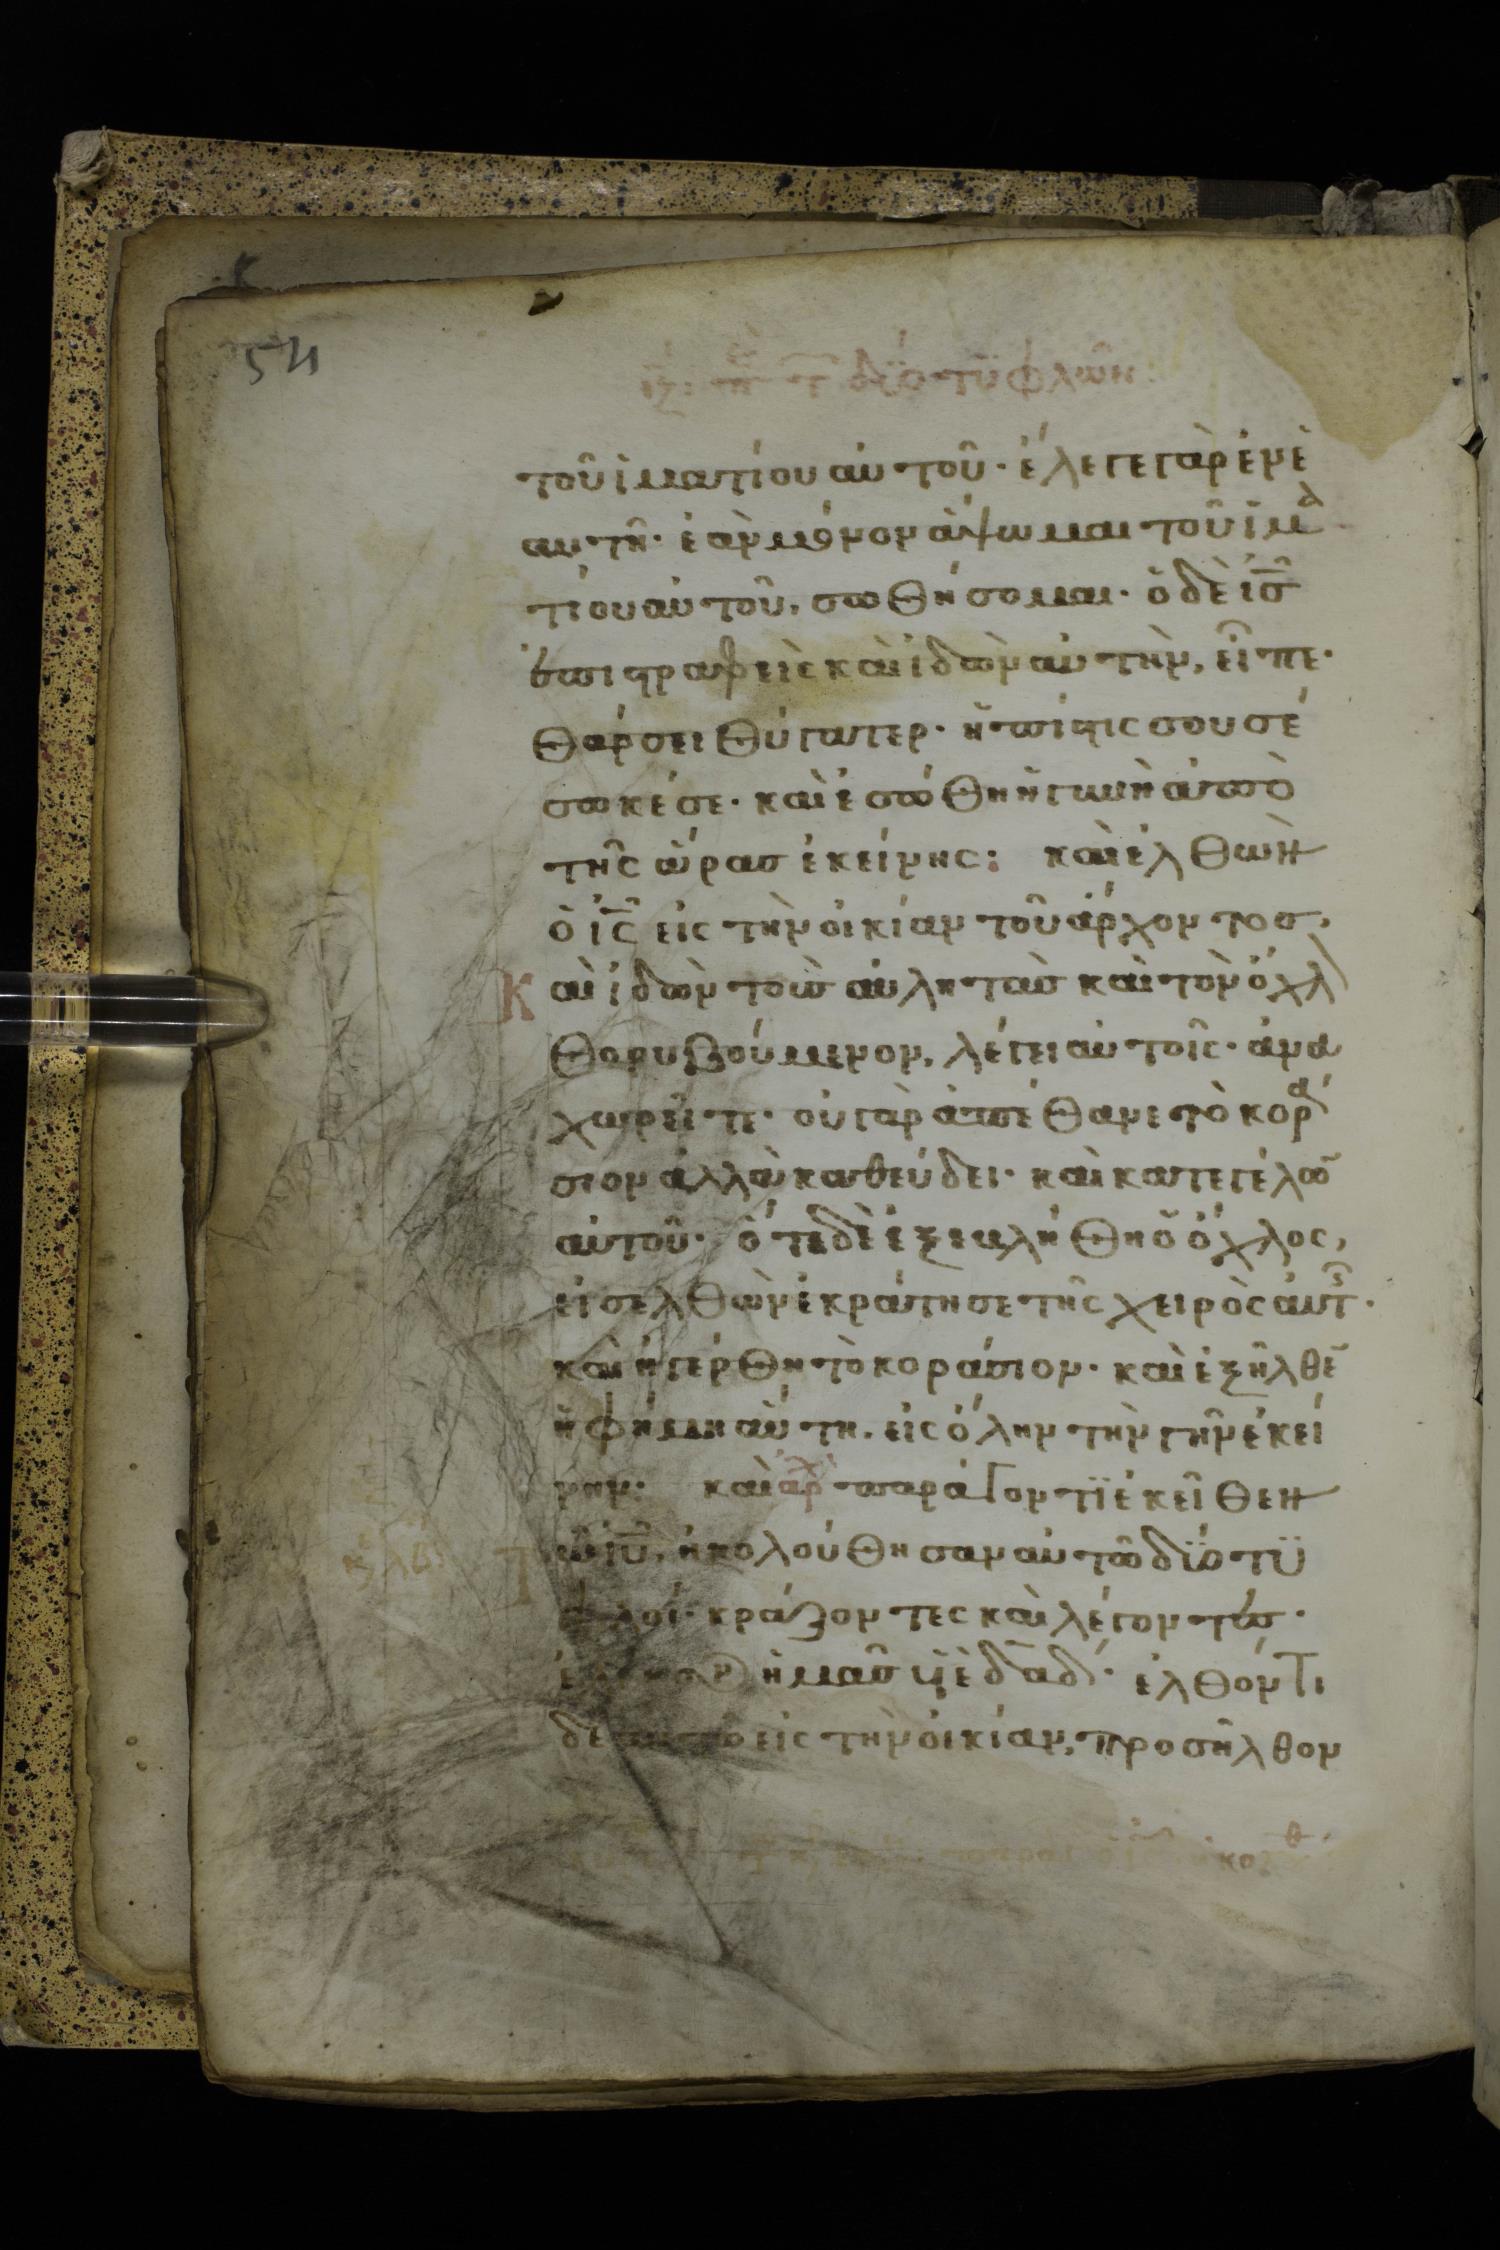 54
τῶν δύο τυφλῶν
τοῦ ἱματίου αὐτοῦ· ἔλεγε γὰρ ἐν ἑ
αυτῆ· ἐὰν μόνον ἅψωμαι τοῦ ἱμα
τίου αὐτοῦ, σωθήσομαι· ὁ δὲ ις
ἐπιστραφεὶς καὶ ἰδὼν αὐτὴν, εἶπε·
θάρσει θύγατερ· ἡ πίστις σου σέ
σωκέ σε· καὶ ἐσώθη ἡ γυνὴ ἀπὸ
τῆς ὥρας ἐκείνης: καὶ ἐλθὼν
ὁ ις εἰς τὴν οἰκίαν τοῦ ἄρχοντος,
Καὶ ἰδὼν τοὺς αὐλητὰς καὶ τὸν ὄχλ
θορυβούμενον, λέγει αὐτοῖς· ἀνα
χωρεῖτε· οὐ γὰρ ἀπέθανε τὸ κορα
σιον ἀλλὰ καθεύδει· καὶ κατεγέλων
αὐτοῦ· ὅτε δὲ ἐξεβλήθη ὁ ὄχλος,
εἰσελθὼν ἐκράτησε τῆς χειρὸς αὐτ·
καὶ ἠγέρθη τὸ κοράσιον· καὶ ἐξῆλθε
ἡ φήμη αὕτη. εἰς ὅλην τὴν γῆν ἐκεί
νην: καὶ αρχ παράγοντι ἐκεῖθεν
Τῶ ιυ, ἠκολούθησαν αὐτῶ δύο τυ
φλοί· κράζοντες καὶ λέγοντες·
ἐλέησον ἡμᾶς υἱὲ δαδ· ἐλθόντι
δὲ εἰς τὴν οἰκίαν, προσῆλθον